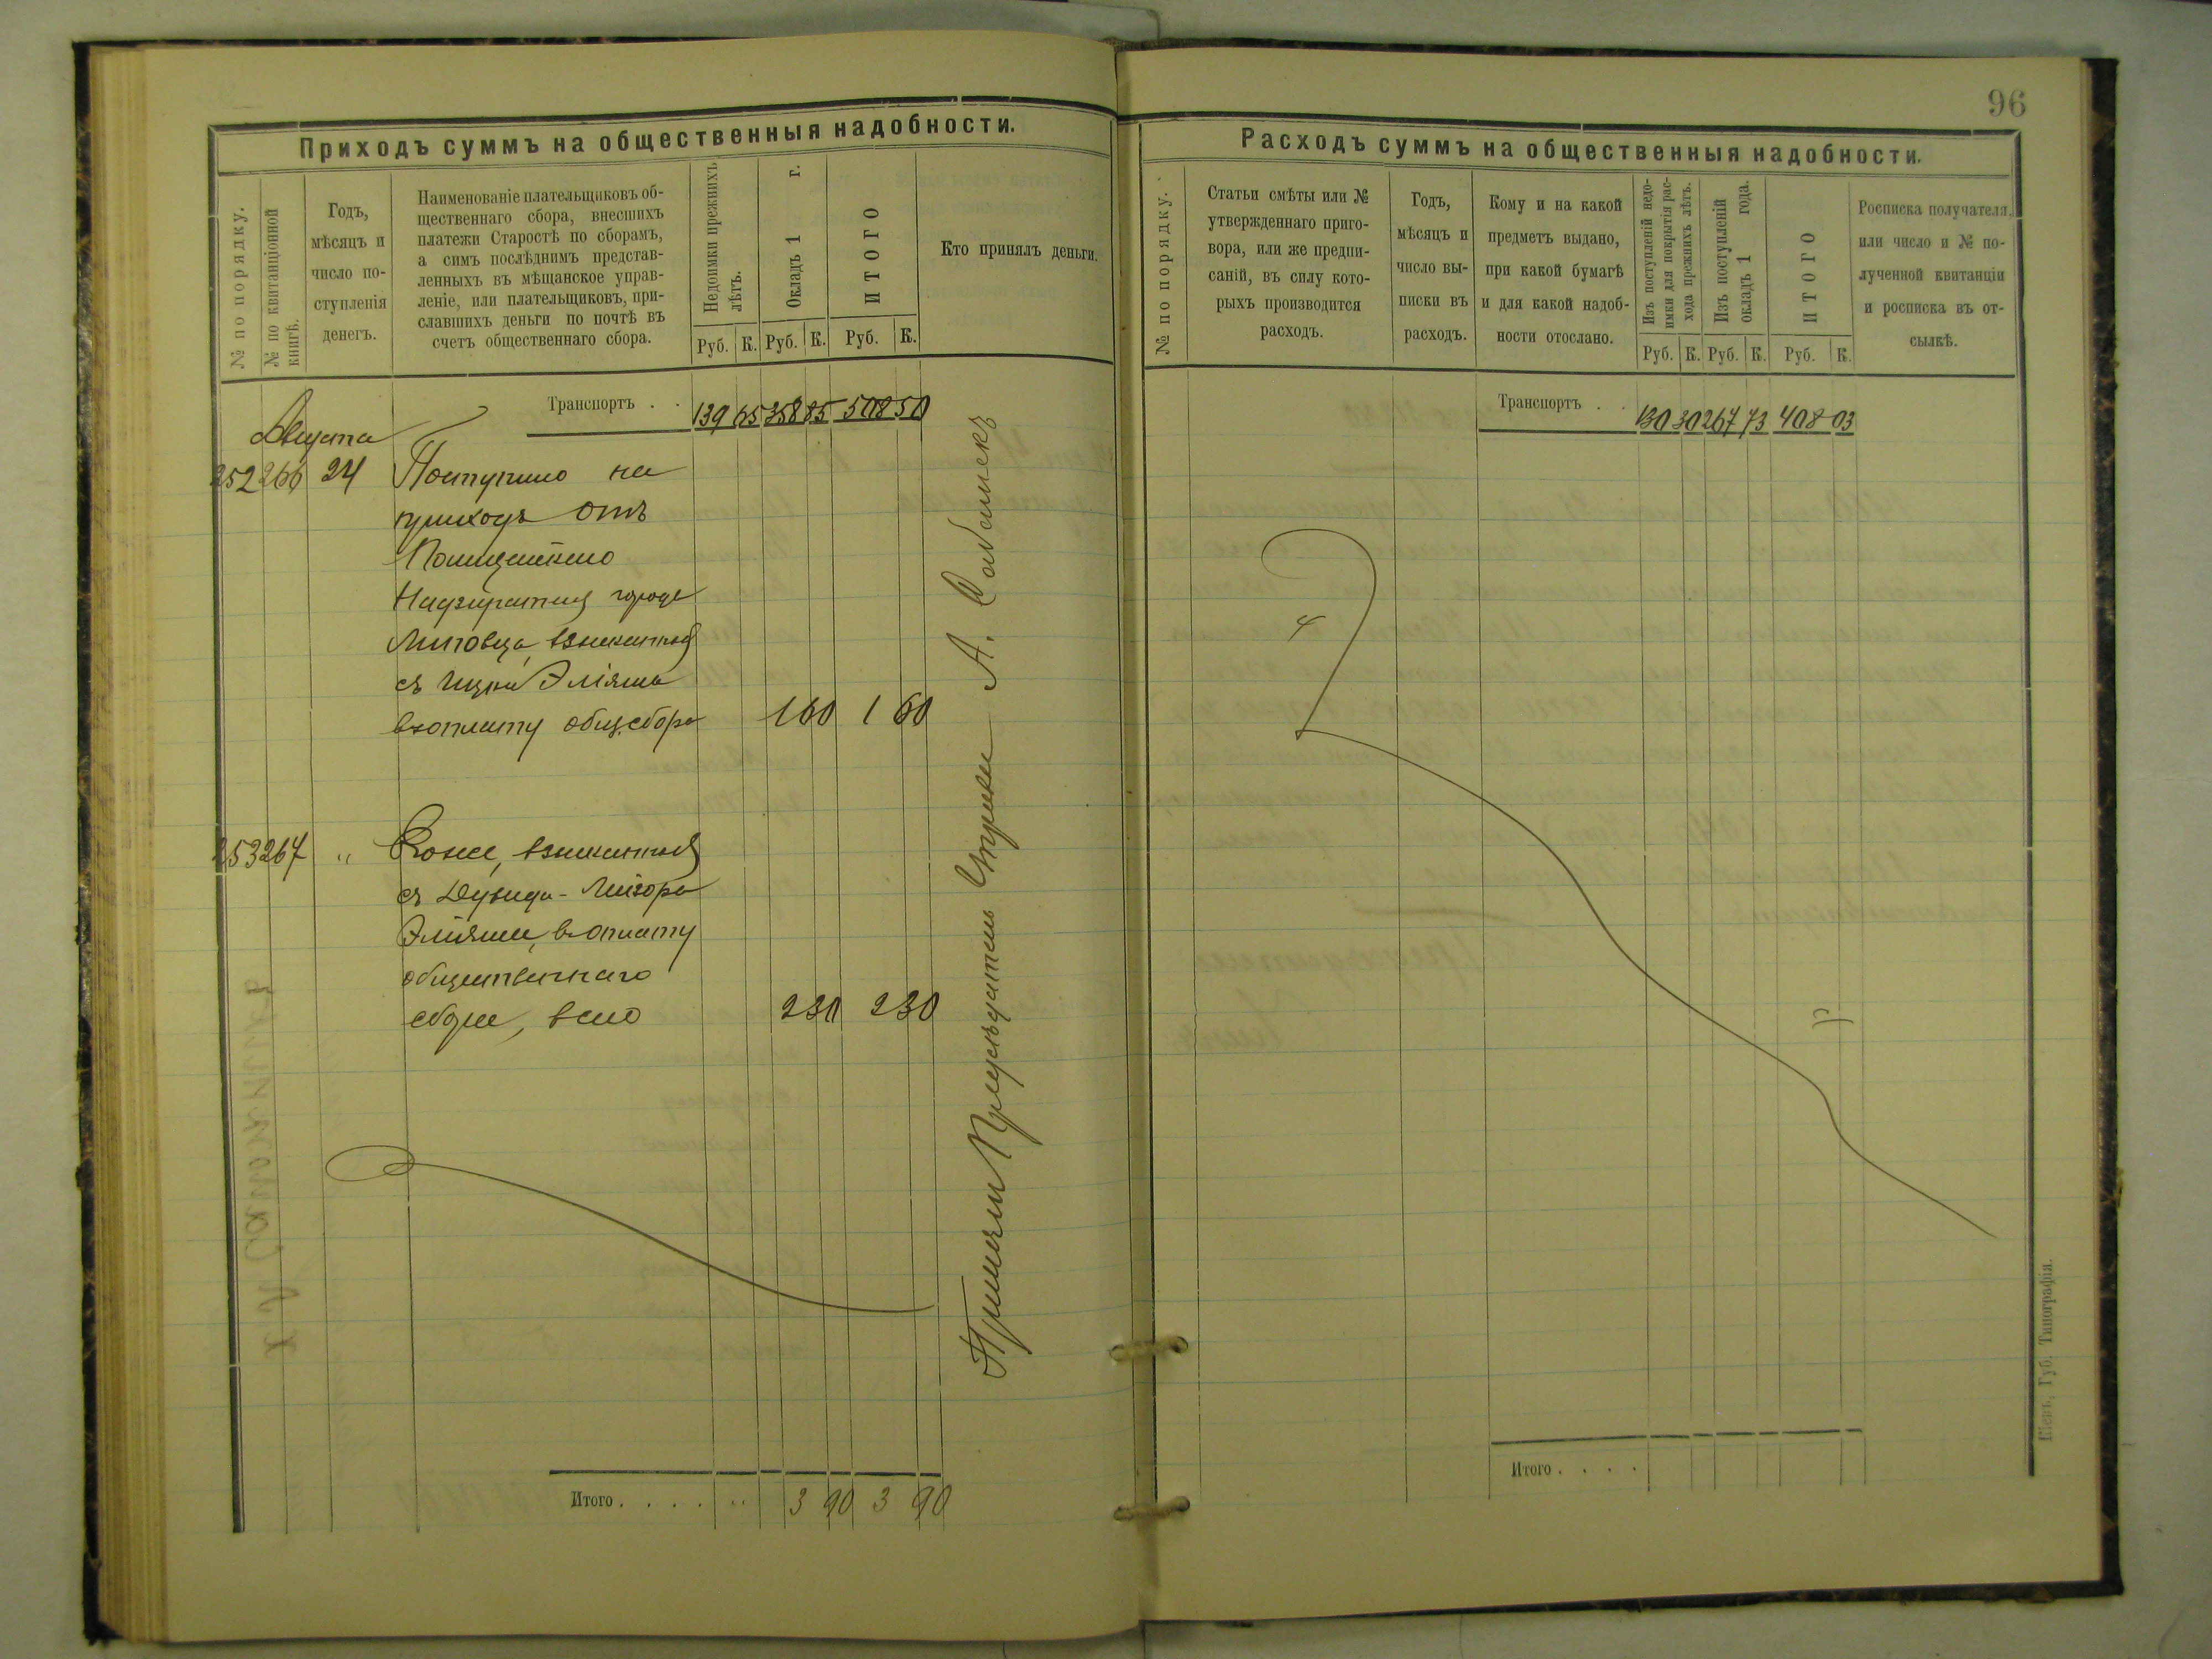 96
Приходъ суммъ на общественныя надобности.
№ по порядку.
№ по квитанціонной
книгѣ.
Годъ,
мѣсяцъ и
число по-
ступленія
денегъ.
Наименованіе плательщиковъ об-
щественнаго сбора, внесшихъ
платежи Старостѣ по сборамъ,
а симъ послѣднимъ представ-
ленныхъ въ мѣщанское управ-
леніе, или плательщиковъ, при-
славшихъ деньги по почтѣ въ
счетъ общественнаго сбора.
Недоимки прежнихъ
лѣтъ.
Окладъ 1 г.
ИТОГО
Кто принялъ деньги.
Руб. К. Руб. К. Руб. К.
Транспортъ . . 139 65 358 85 508 50
Августа
252 266 24 Поступило на
приходъ отъ
Полицейскаго
Надзирателя города
Липовца, взысканныя
съ Ицки Эліяша
въ оплату общ. сбора 1 60 1 60
253 267 " Тоже, взысканныя
съ Дувида-Лейзора
Эліяша, въ оплату
общественнаго
сбора, всего 2 30 2 30
Приняли Предсѣдатель
А.
Итого . . . . " 3 90 3 90
Расходъ суммъ на общественныя надобности.
№ по порядку.
Статьи смѣты или №
утвержденнаго приго-
вора, или же предпи-
саній, въ силу кото-
рыхъ производится
расходъ.
Годъ,
мѣсяцъ и
число вы-
писки въ
расходъ.
Кому и на какой
предметъ выдано,
при какой бумагѣ
и для какой надоб-
ности отослано.
Изъ поступленій недо-
имки для покрытія рас-
хода прежнихъ лѣтъ.
Изъ поступленій
окладъ 1 года.
ИТОГО
Росписка получателя,
или число и № по-
лученной квитанціи
и росписка въ от-
сылкѣ.
Руб. К. Руб. К. Руб. К.
Транспортъ . . 130 30 267 73 408 03
Итого . . . .
Кіевъ, Губ. Типографія.